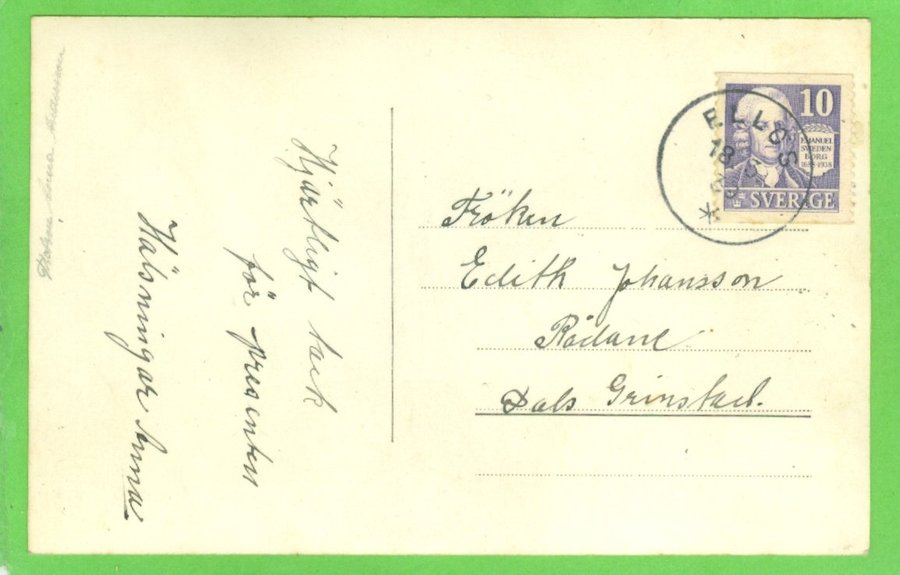 Hjärtligt tack
för presenten
Hälsningar Anna
Fröken
Edith Johansson
Rådane
Dals Grinstad.
10
EMANUEL
SWEDEN
BORG
1688-1938
SVERIGE
ELLÖS
18
Anna